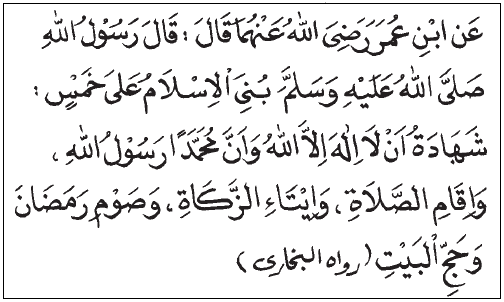 عَنِ ابْنِ عُمَرَ رَضِيَ اللهُ عَنْهُمَا قَالَ : قَالَ رَسُوْلُ اللهِ
صَلَّى اللهُ عَلَيْهِ وَسَلَّمَ بُنِيَ الْاِسْلَامُ عَلَى خَمْسٍ :
شَهَادَةُ اَنْ لَا اِلٰهَ اِلَّا اللهُ وَاَنَّ مُحَمَّدًا رَسُوْلُ اللهِ ،
وَاِقَامِ الصَّلَاةِ ، وَاِيْتَاءِ الزَّكَاةِ ، وَصَوْمِ رَمَضَانَ
وَحَجِّ الْبَيْتِ (رواه البخارى)